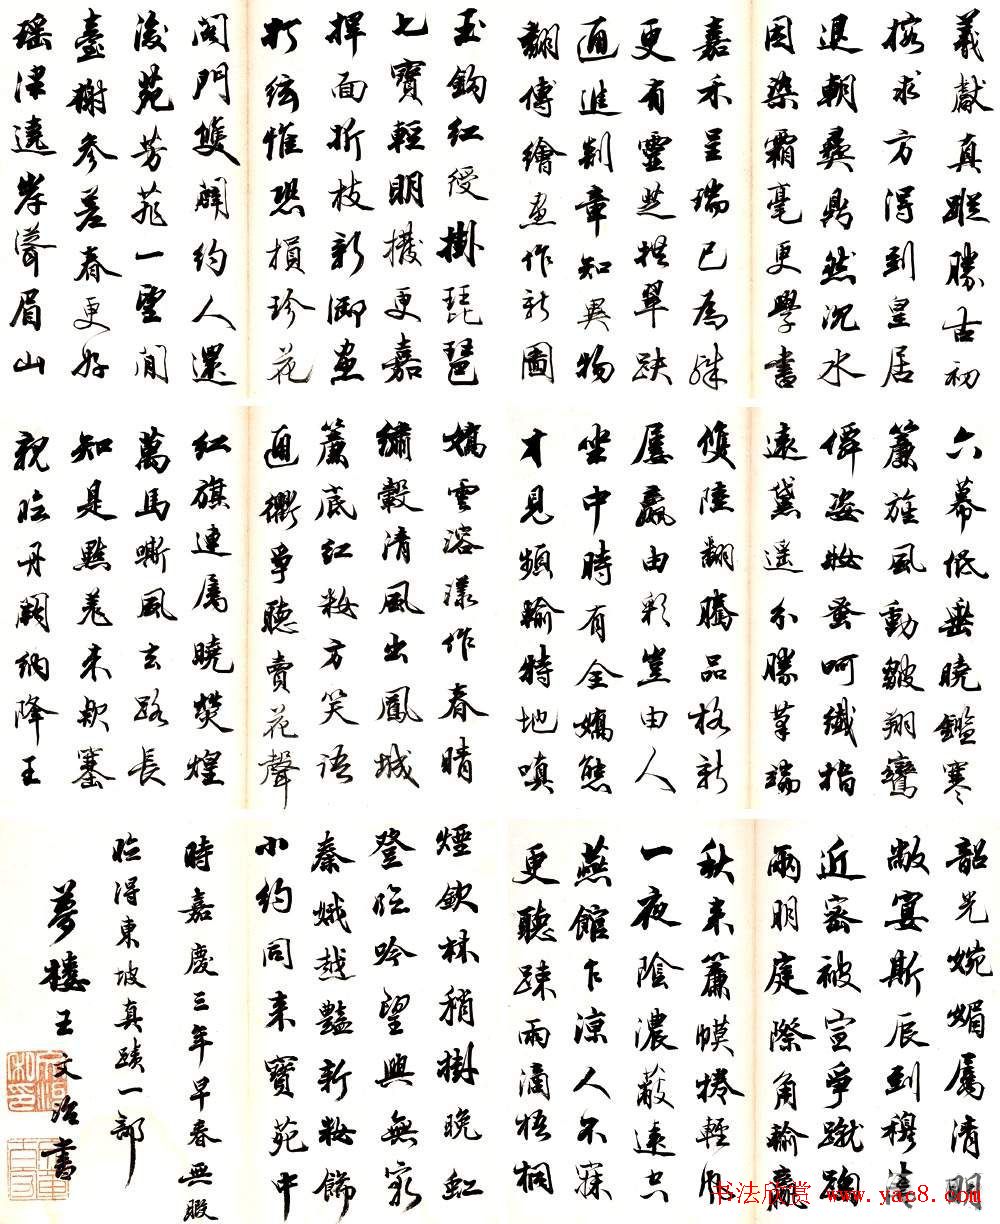 羲獻真蹤勝古初
搜求方得到皇居
退朝彝鼎然沉水
因染霜毫更學書
嘉禾呈瑞已為殊
更有靈芝拱翠趺
通進剡章知異物
翻傳繪畫作新圖
玉鈎紅綬掛琵琶
七寶輕明撥更嘉
捍面折枝新御畫
打絃惟恐損珍花
閤門雙闢約人還
後苑芳菲一望間
臺榭參差春更好
瑤津遶岸聳眉山
六幕低垂曉鑑寒
簾旌風動皺翔鸞
僊姿妝蚤呵纖指
遠黛遥分勝筆端
雙陸翻騰品格新
屢贏由彩豈由人
坐中時有全嬌態
才見頻輸特地嗔
嬌雲溶漾作春晴
繡轂清風出鳳城
簾底紅妝方笑語
通衢爭聽賣花聲
紅旗連屬曉熒煌
萬馬嘶風去路長
知是黠羌來款塞
親臨丹闕納降王
韶光婉媚屬清明
敞宴斯辰到穆清
近密被宣爭蹴鞠
兩明庭際角輸贏
秋來簾幙捲輕風
一夜陰濃蔽遠空
燕館乍涼人不寐
更聽疎雨滴梧桐
煙斂林稍掛晚虹
登臨吟望興無窮
秦娥越豔新妝飾
小約同來寶苑中
時嘉慶三年早春無暇
臨得東坡真蹟一部
夢樓王文治書
书法欣赏 www.yac8.com